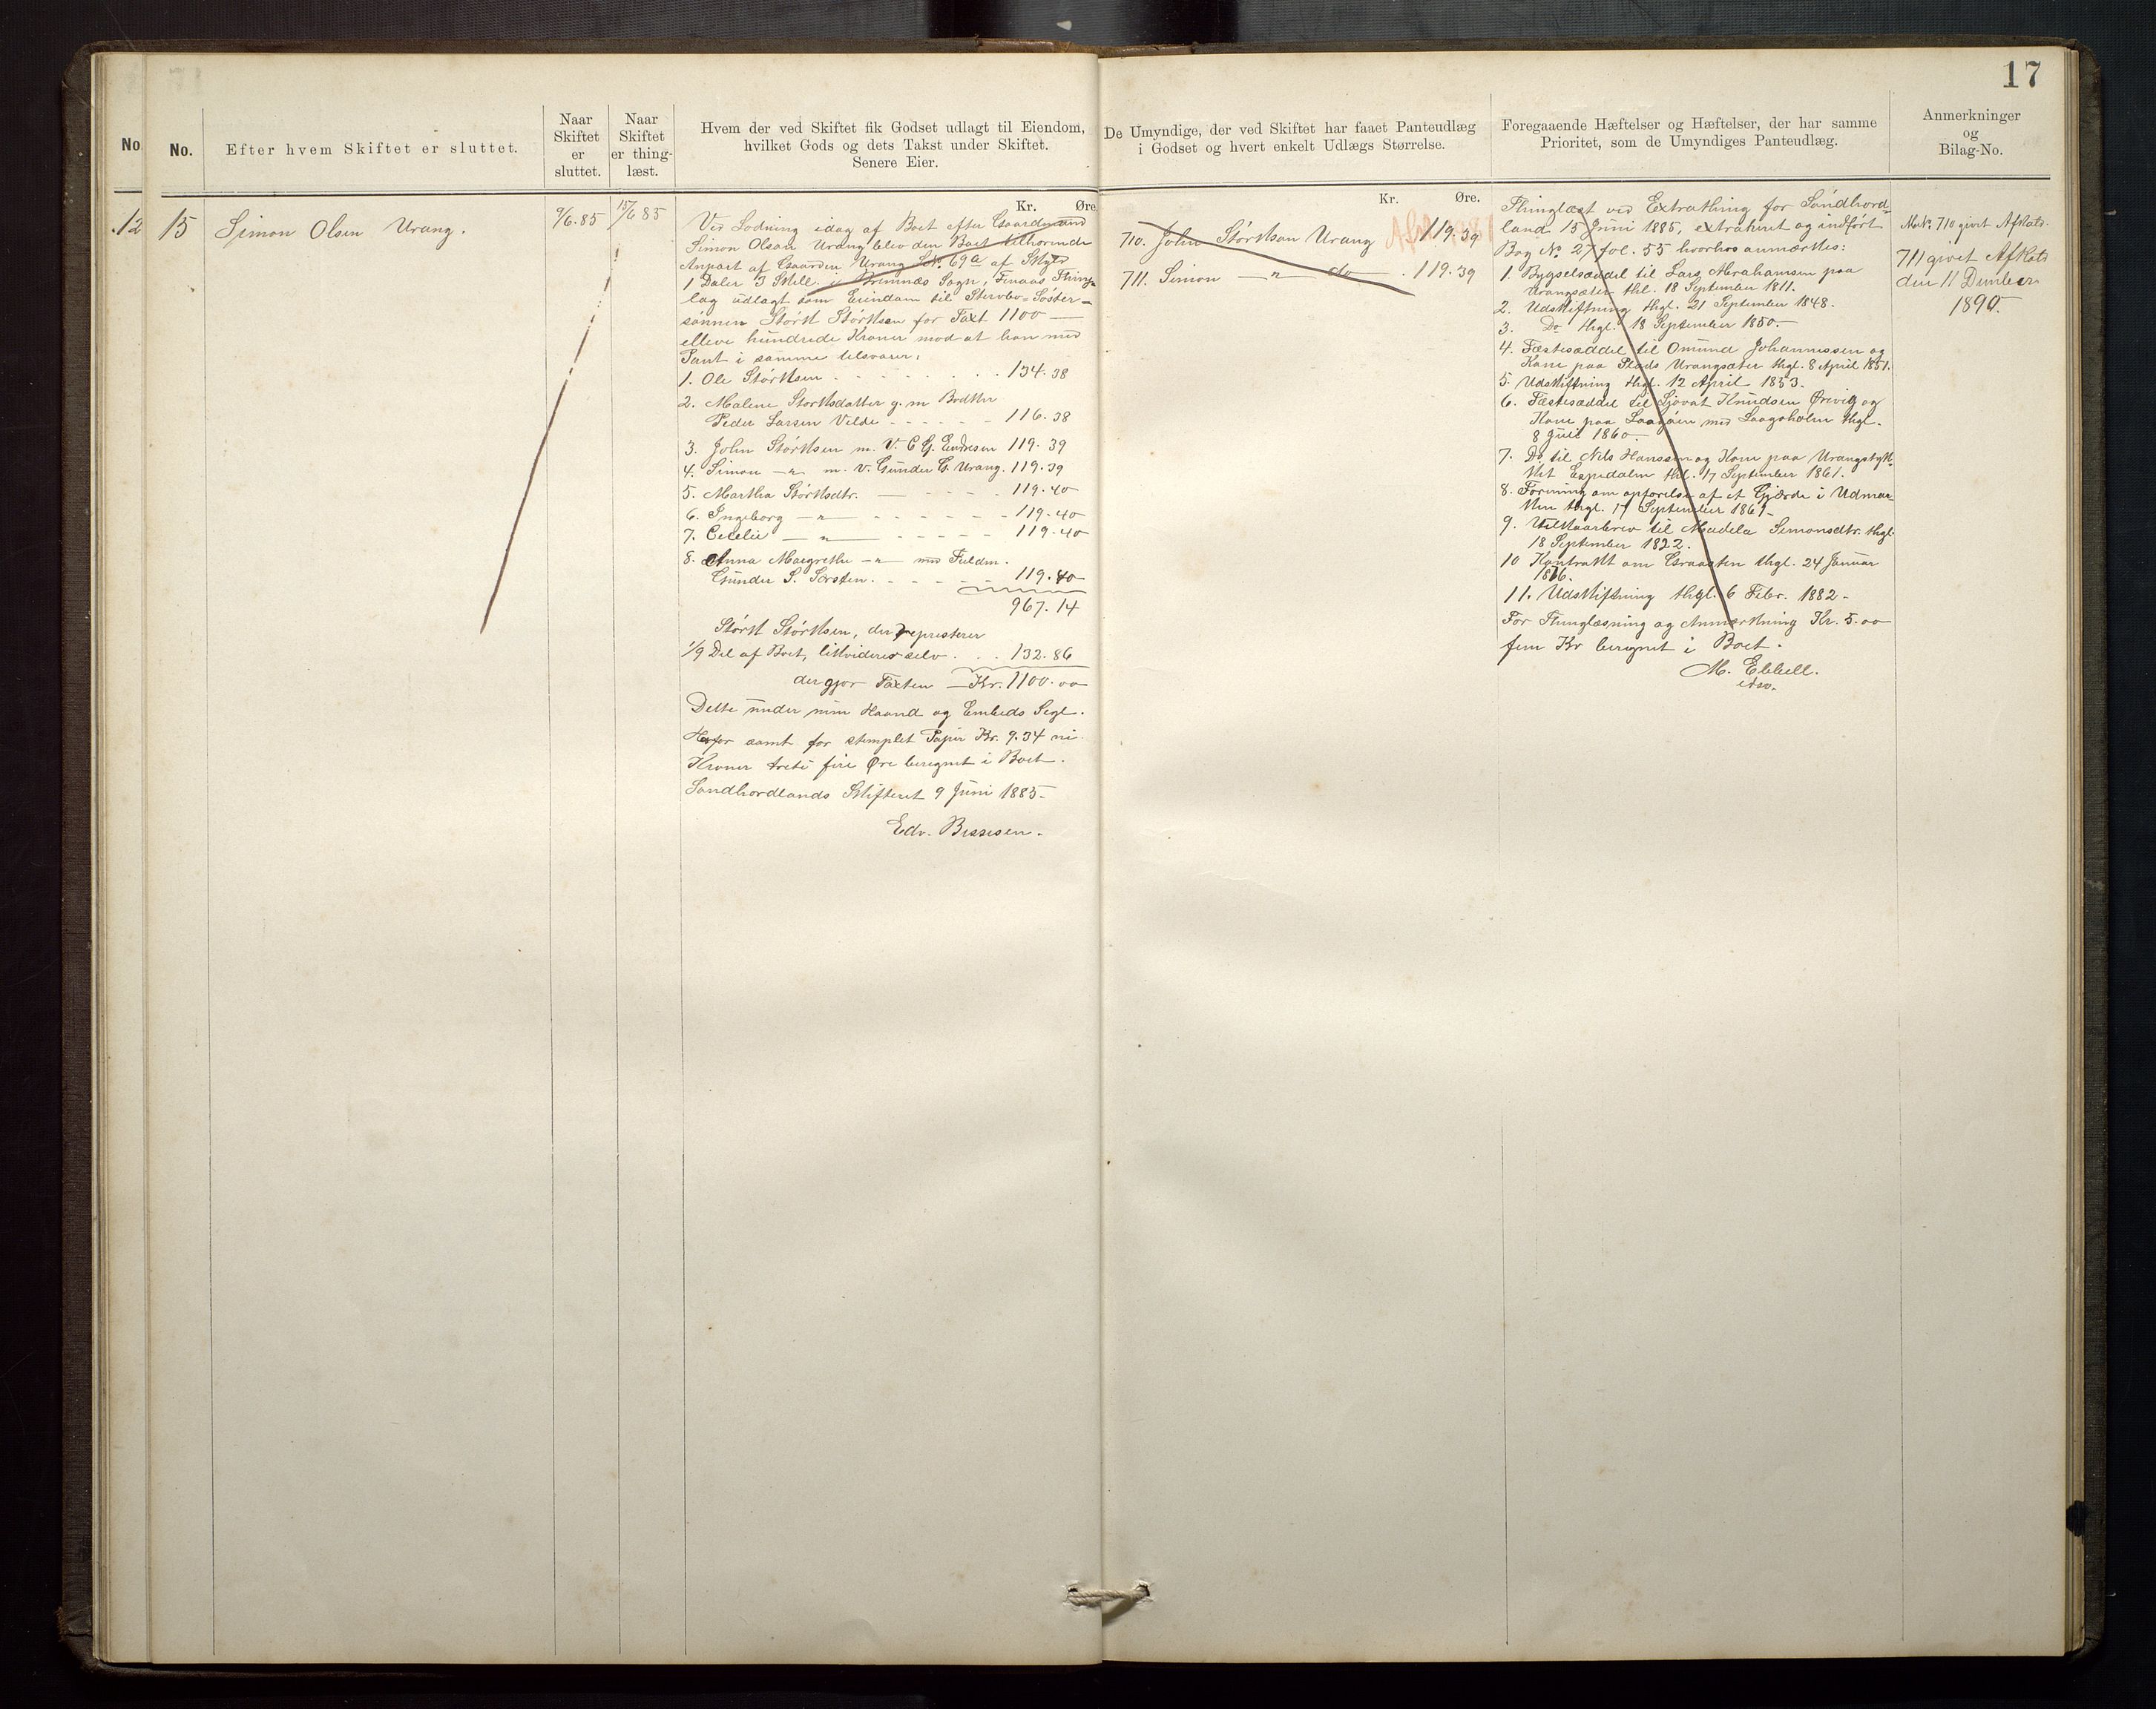 17
No.
No.
Efter hvem Skiftet er sluttet.
Naar
Skiftet
er
sluttet.
Naar
Skiftet
er thing-
læst.
Hvem der ved Skiftet fik Godset udlagt til Eiendom,
hvilket Gods og dets Takst under Skiftet.
Senere Eier.
De Umyndige, der ved Skiftet har faaet Panteudlæg
i Godset og hvert enkelt Udlægs Størrelse.
Foregaaende Hæftelser og Hæftelser, der har samme
Prioritet, som de Umyndiges Panteudlæg.
Anmerkninger
og
Bilag-No.
12
15
Simon Olsen Urang.
9/6.85
15/6 85
Kr. Øre.
Ved Lodning idag af Boet efter Gaardmand
Simon Olsen Urang blev den Boet tilhørende
Anpart af Gaarden Urang L.No. 69a af Skyld
1 Daler 3 Skill. i Bremnæs Sogn, Finaas Thing-
lag udlagt som Eiendom til Stervbo-Søster-
sønnen Størk Størksen for Taxt 1100 —
elleve hundrede Kroner mod at han med
Pant i samme tilsvarer:
1. Ole Størksen . . . 134.38
2. Malene Størksdatter g. m Brødker
Peder Larsen Vilde - - - 116.38
3. John Størksen m. V. C G. Endresen 119.39
4. Simon —"— m. v. Gunder G. Urang. 119.39
5. Martha Størksdtr. — - - - 119.40
6. Ingeborg —"— - - - 119.40
7. Cecelie —"— - - - 119.40
8. Anna Margrethe —"— med Fuldm.
Gunder S. Sørsten. - - - 119.40
967.14
Størk Størksen, der repræsterer
1/9 Del af Boet, likviderer selv . . 132.86
der gjør Taxten — Kr. 1100.00
Dette under min Haand og Embeds Segl.
Herfor samt for stemplet Papir Kr. 9.34 ni
Kroner treti fire Øre beregnet i Boet.
Søndhordlands Skifteret 9 Juni 1885-
Edv. Bissesen.
Kr. Øre.
710. John Størksen Urang 119.39
711. Simon —"— do . 119.39
Thinglæst ved Extrathing for Søndhord-
land 15 Juni 1885, extraheret og indført
Bog No. 27 fol. 55 hvorhos anmærkes:
1. Bygselseddel til Lars Abrahamsen paa
Urangsæter thl. 18 September 1811.
2. Udskiftning thgl. 21 September 1848.
3. Do thgl. 18 September 1850.-
4. Fæstesæddel til Omund Johannessen og
Kone paa Plads Urangsæter thgl. 8 April 1851.
5. Udskiftning thgl. 12 April 1853.
6. Fæstesæddel til Sjovat Knudsen Ørevig og
Kone paa Laagøen med Laagsholm thgl.
8 Juli 1860.
7. Do til Nils Hanssen og Kone paa Urangstyk-
ket Espedalen thl. 17 September 1861.
8. Forening om opførelse af et Gjærde i Udmar-
ken thgl. 17 September 1861-
9. Vilkaarbrev til Madela Simonsdtr. thgl.
18 September 1822.
10 Kontrakt om Graasten thgl. 24 Januar
1876.
11. Udskiftning thgl. 6 Febr. 1882-
For Thinglæsning og Anmærkning Kr. 5.00
fem Kr beregnet i Boet.
M. Ebbell.
cst.
M.No. 710 givet Afkald.
711 givet Afkald
den 11 December
1890.